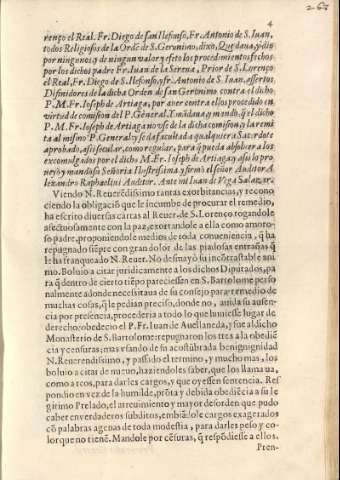 265
4
renço el Real. Fr. Diego de san Ilefonso, Fr. Antonio de S. Iuan,
todos Religiosos de la Ordē de S. Geronimo, dixo, Que daua, y dio
por ningunos y de ningun valor y efeto los procedimientos fechos
por los dichos padre Fr. Iuan de la Serena, Prior de S. Lorenço
el Real, Fr. Diego de S. Ilefonso, y fr. Antonio de S. Iuan, assertos
Difinidores de la dicha Orden de san Geronimo contra el dicho
P. M. Fr. Ioseph de Artiaga, por auer contra ellos procedido en
virtud de comision del P. General. Y mādaua, y mandò, q̃ el dicho
P. M. Fr. Ioseph de Artiaga no vse de la dicha comision, y la remita
al mismo P. General: y se da facultad a qualquiera Sacerdote
aprobado, assi secular, como regular, para q̃ pueda absoluer a los
excomulgados por el dicho M. Fr. Ioseph de Artiaga, y assi lo proueyò
y mandò su Señoria Ilustrissima, y firmò el señor Auditor. Alexandro
Raphaelini Auditor. Ante mi Iuan de Vega Salazar.
Viendo N. Reuerēdissimo tantas exorbitancias, y reconociendo
la obligaciō que le incumbe de procurar el remedio,
ha escrito diuersas cartas al Reuer. de S. Lorenço rogandole
afectuosamente con la paz, exortandole a ella como amoroso
padre, proponiendole medios de toda conueniencia, q̃ ha
repugnado siēpre con gran dolor de las piadosas entrañas q̃
le ha franqueado N. Reuer. No desmayò su incōtrastable animo.
Boluio a citar juridicamente a los dichos Diputados, para
q̃ dentro de cierto tiēpo pareciessen en S. Bartolome personalmente
adonde necessitaua de su consejo para remedio de
muchas cosas, q̃ le pedian preciso, donde no, auida su ausencia
por presencia, procederia a todo lo que huuiesse lugar de
derecho: obedecio el P. Fr. Iuan de Auellaneda, y fue al dicho
Monasterio de S. Bartolome: repugnaron los tres a la obediē
cia y censuras; mas vsando de su acostūbrada benignignidad
N. Reuerendissimo, y passado el termino, y mucho mas, los
boluio a citar de nueuo, haziendoles saber, que los llamaua,
como a reos, para darles cargos, y que oyessen sentencia. Respondio
en vez de la humilde, prōta y debida obediēcia a su legitimo
Prelado, el atreuimiento y mayor desorden que pudo
caber en verdaderos subditos, embiādole cargos exagerados
cō palabras agenas de toda modestia, para darles peso y color
que no tienē. Mandole por cēsuras, q̃ respōdiesse a ellos.
Pren-